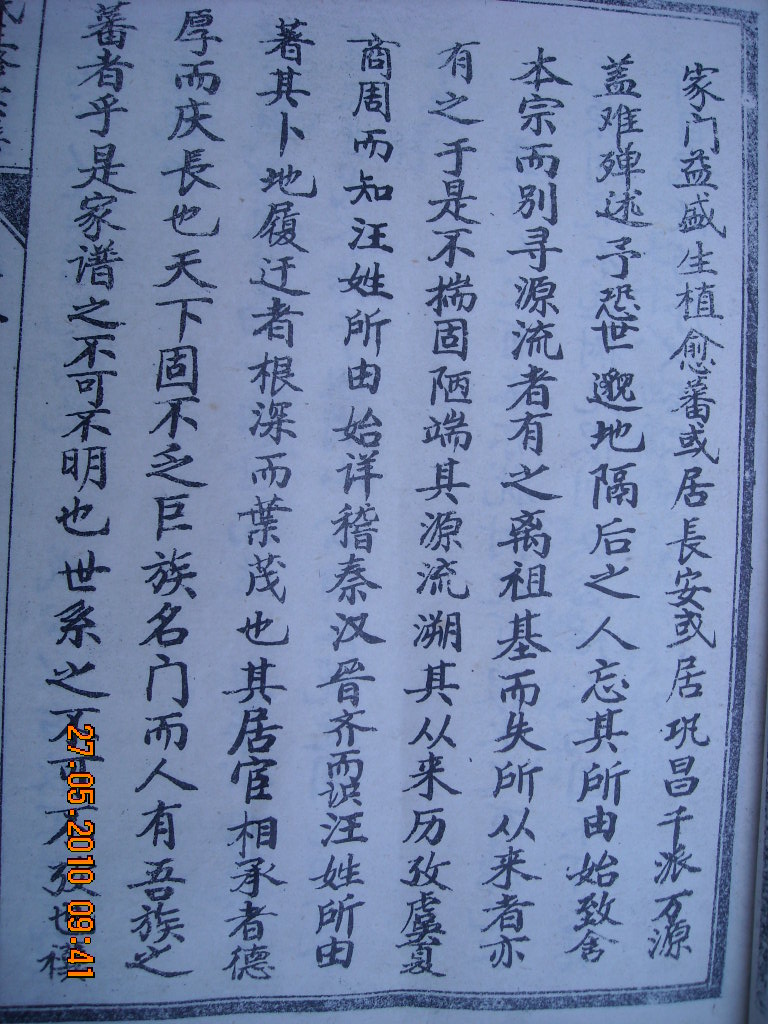 家门益盛生植愈蕃或居長安或居巩昌千派万源
盖难殚述予恐世邈地隔后之人忘其所由始致舍
本宗而别寻源流者有之离祖基而失所从来者亦
有之于是不揣固陋端其源流溯其从来历攷虞夏
商周而知汪姓所由始详稽秦汉晉齐而识汪姓所由
著其卜地履迁者根深而葉茂也其居官相承者德
厚而庆長也天下固不乏巨族名门而人有吾族之
蕃者乎是家谱之不可不明也世系之不可不攷也
27.05.2010 09:41